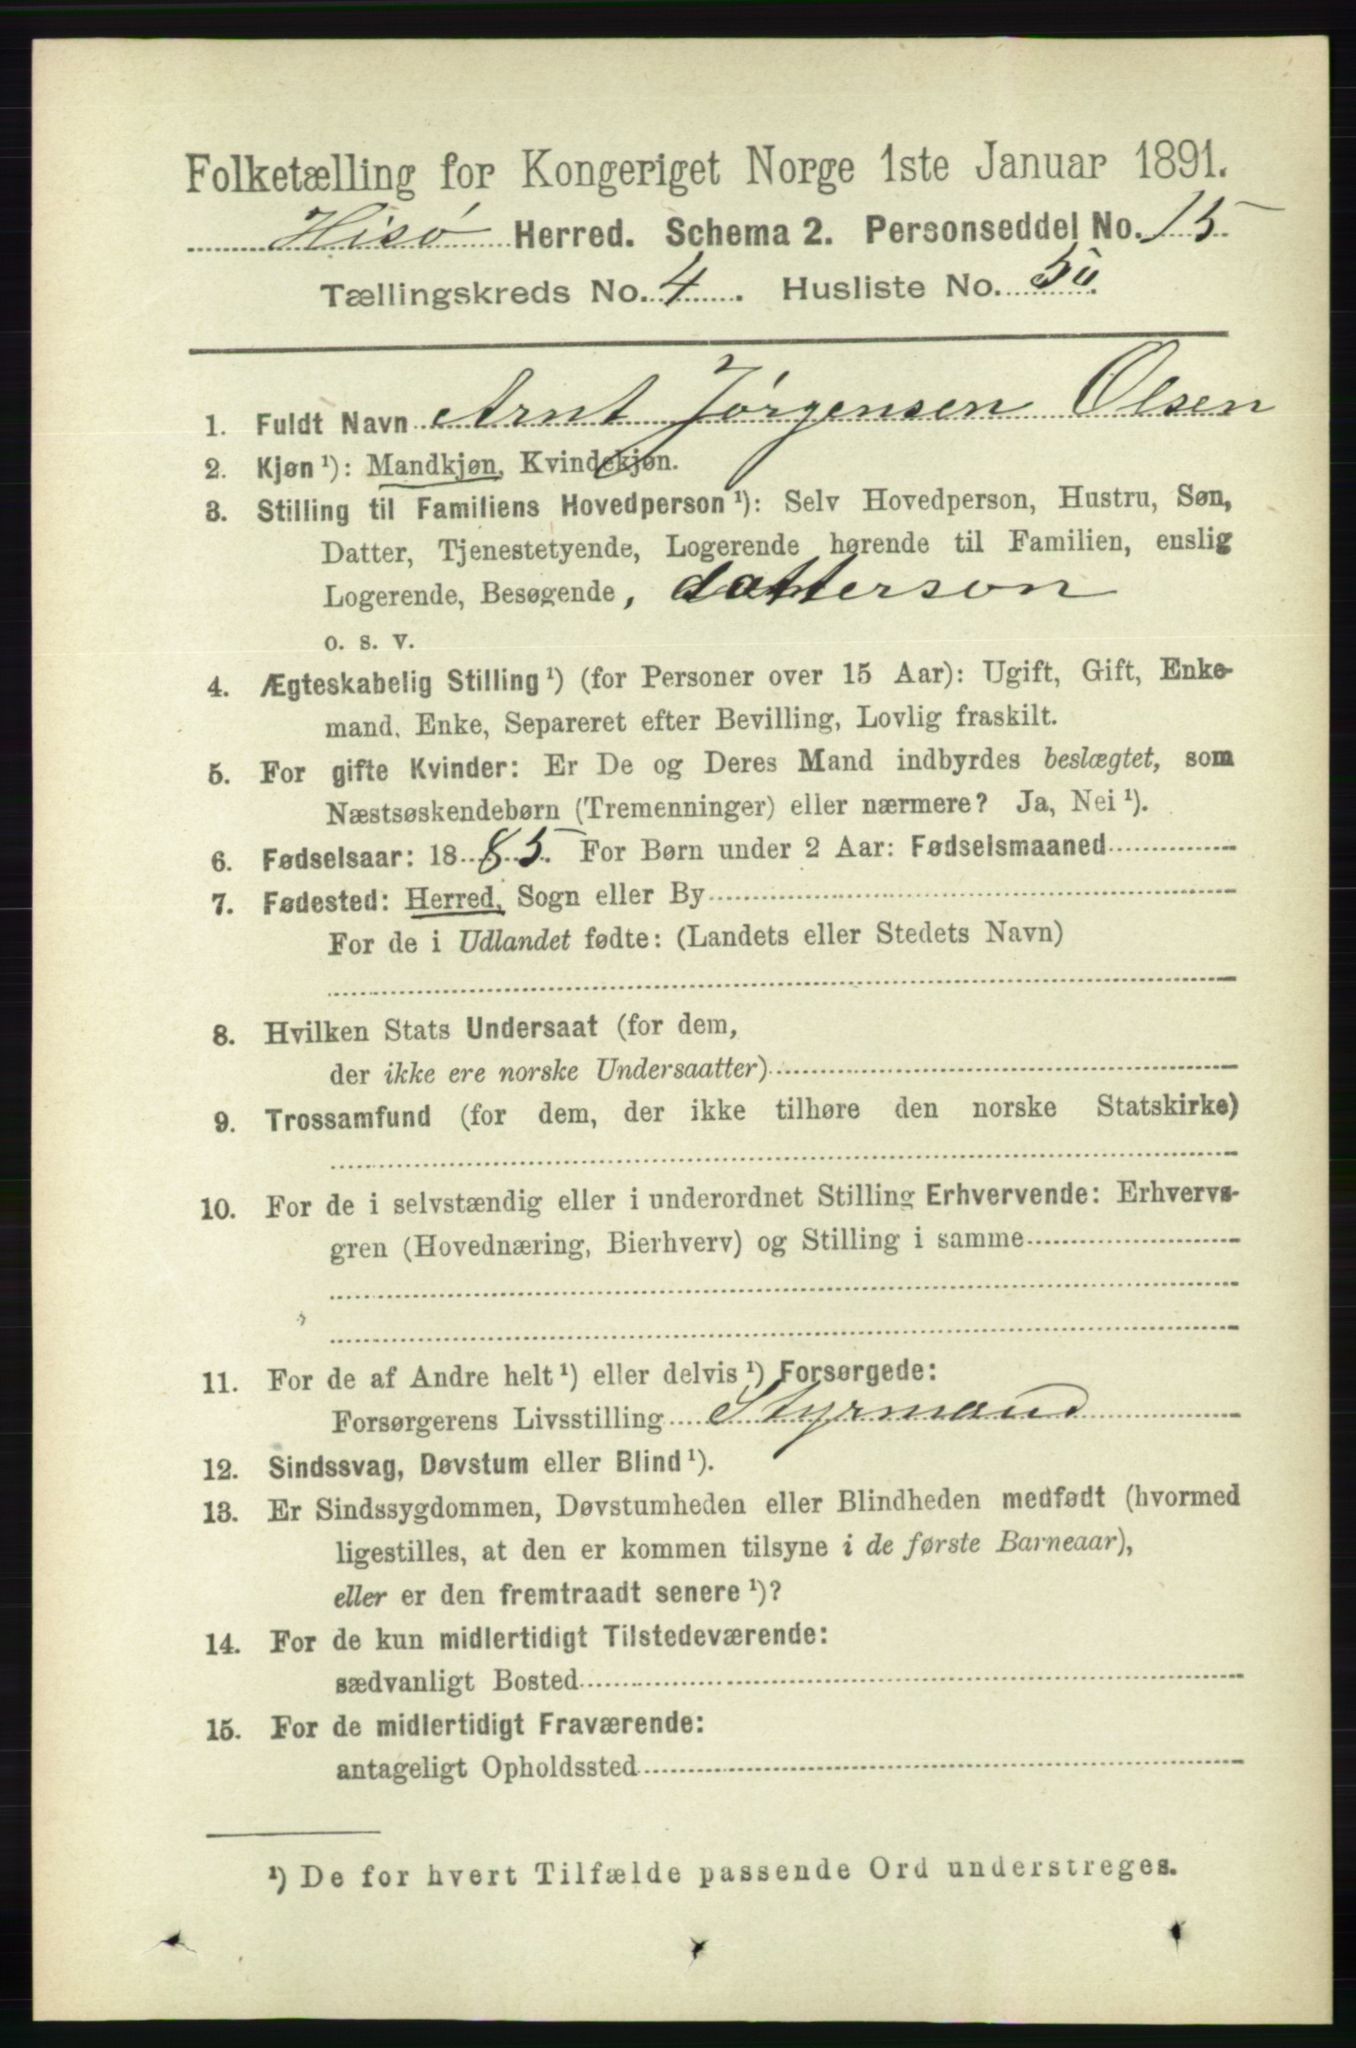 Folketælling for Kongeriget Norge 1ste Januar 1891.
Hisø Herred. Schema 2. Personseddel No. 15
Tællingskreds No. 4. Husliste No. 50.
1. Fuldt Navn Arnt Jørgensen Olsen
2. Kjøn¹): Mandkjøn, Kvindekjøn.
3. Stilling til Familiens Hovedperson¹): Selv Hovedperson, Hustru, Søn,
Datter, Tjenestetyende, Logerende hørende til Familien, enslig
Logerende, Besøgende, datterson
o. s. v.
4. Ægteskabelig Stilling¹) (for Personer over 15 Aar): Ugift, Gift, Enke-
mand, Enke, Separeret efter Bevilling, Lovlig fraskilt.
5. For gifte Kvinder: Er De og Deres Mand indbyrdes beslægtet, som
Næstsøskendebørn (Tremenninger) eller nærmere? Ja, Nei¹).
6. Fødselsaar: 1885. For Børn under 2 Aar: Fødselsmaaned
7. Fødested: Herred, Sogn eller By
For de i Udlandet fødte: (Landets eller Stedets Navn)
8. Hvilken Stats Undersaat (for dem,
der ikke ere norske Undersaatter)
9. Trossamfund (for dem, der ikke tilhøre den norske Statskirke)
10. For de i selvstændig eller i underordnet Stilling Erhvervende: Erhvervs-
gren (Hovednæring, Bierhverv) og Stilling i samme
11. For de af Andre helt¹) eller delvis¹) Forsørgede:
Forsørgerens Livsstilling Styrmand
12. Sindssvag, Døvstum eller Blind¹).
13. Er Sindssygdommen, Døvstumheden eller Blindheden medfødt (hvormed
ligestilles, at den er kommen tilsyne i de første Barneaar),
eller er den fremtraadt senere¹)?
14. For de kun midlertidigt Tilstedeværende:
sædvanligt Bosted
15. For de midlertidigt Fraværende:
antageligt Opholdssted
¹) De for hvert Tilfælde passende Ord understreges.